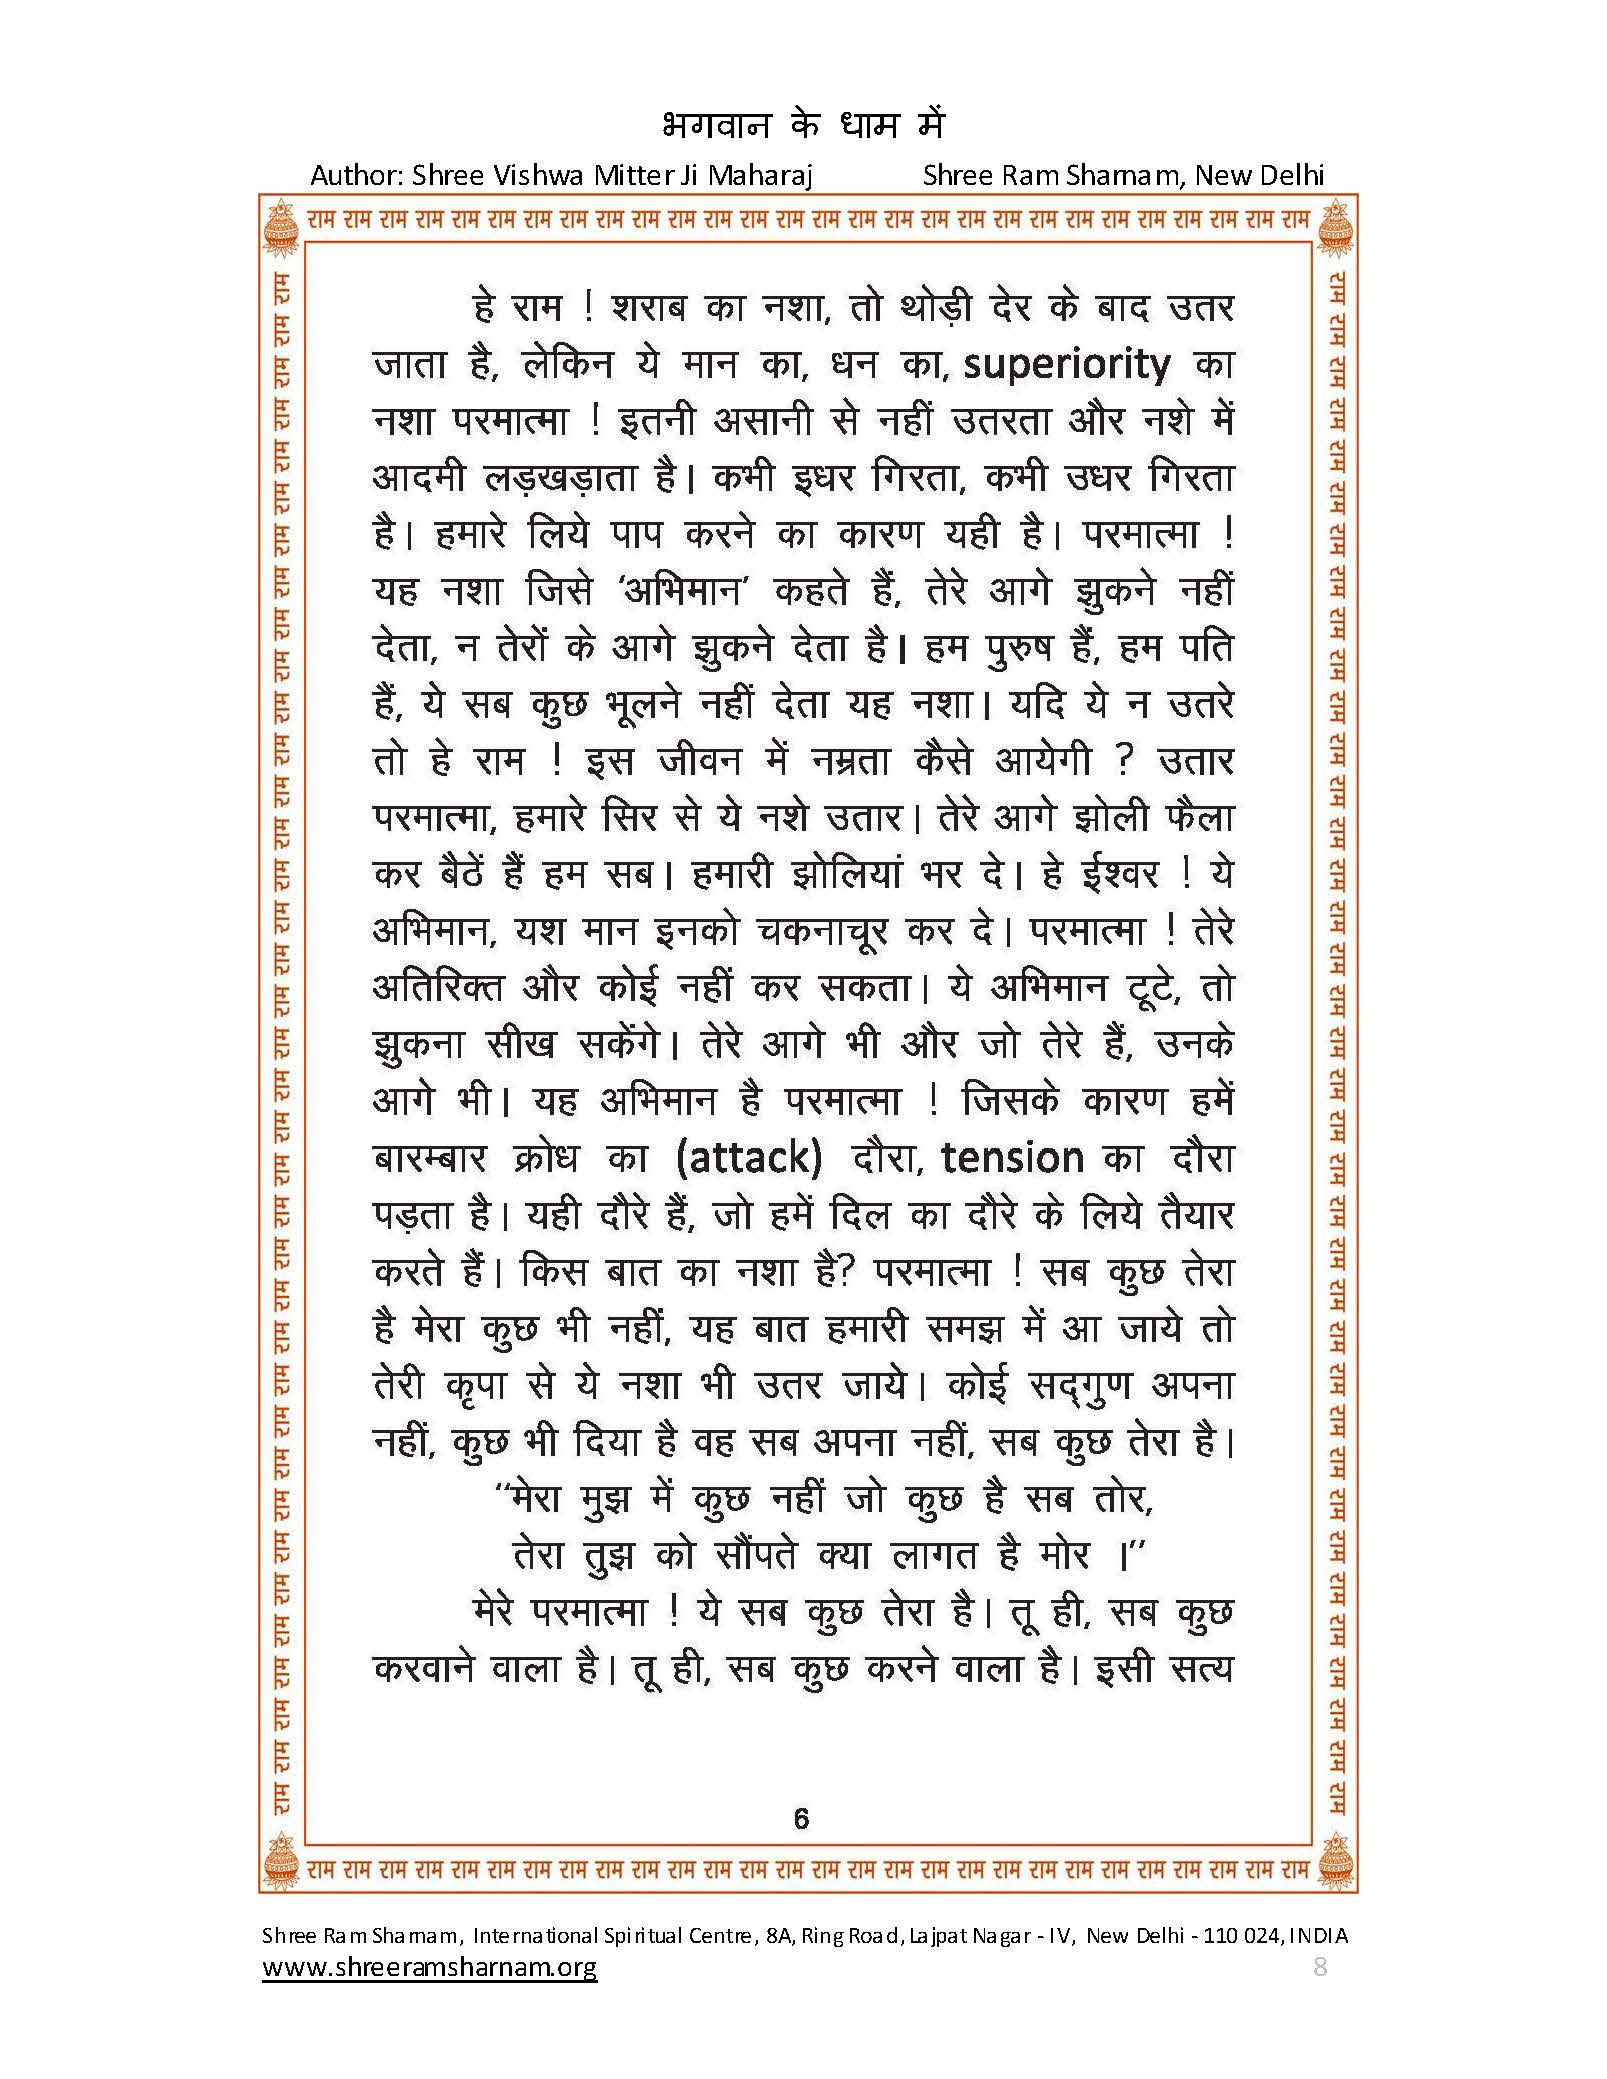 भगवान के धाम में
Author: Shree Vishwa Mitter Ji Maharaj Shree Ram Sharnam, New Delhi
राम राम राम राम राम राम राम राम राम राम राम राम राम राम राम राम राम राम राम राम राम राम राम राम राम राम राम राम
हे राम ! शराब का नशा, तो थोड़ी देर के बाद उतर
जाता है, लेकिन ये मान का, धन का, superiority का
नशा परमात्मा ! इतनी असानी से नहीं उतरता और नशे में
आदमी लड़खड़ाता है। कभी इधर गिरता, कभी उधर गिरता
है। हमारे लिये पाप करने का कारण यही है। परमात्मा !
यह नशा जिसे ‘अभिमान’ कहते हैं, तेरे आगे झुकने नहीं
देता, न तेरों के आगे झुकने देता है। हम पुरुष हैं, हम पति
हैं, ये सब कुछ भूलने नहीं देता यह नशा। यदि ये न उतरे
तो हे राम ! इस जीवन में नम्रता कैसे आयेगी ? उतार
परमात्मा, हमारे सिर से ये नशे उतार। तेरे आगे झोली फैला
कर बैठें हैं हम सब। हमारी झोलियां भर दे। हे ईश्वर ! ये
अभिमान, यश मान इनको चकनाचूर कर दे। परमात्मा ! तेरे
अतिरिक्त और कोई नहीं कर सकता। ये अभिमान टूटे, तो
झुकना सीख सकेंगे। तेरे आगे भी और जो तेरे हैं, उनके
आगे भी। यह अभिमान है परमात्मा ! जिसके कारण हमें
बारम्बार क्रोध का (attack) दौरा, tension का दौरा
पड़ता है। यही दौरे हैं, जो हमें दिल का दौरे के लिये तैयार
करते हैं। किस बात का नशा है? परमात्मा ! सब कुछ तेरा
है मेरा कुछ भी नहीं, यह बात हमारी समझ में आ जाये तो
तेरी कृपा से ये नशा भी उतर जाये। कोई सद्‌गुण अपना
नहीं, कुछ भी दिया है वह सब अपना नहीं, सब कुछ तेरा है।
“मेरा मुझ में कुछ नहीं जो कुछ है सब तोर,
तेरा तुझ को सौंपते क्या लागत है मोर ।”
मेरे परमात्मा ! ये सब कुछ तेरा है। तू ही, सब कुछ
करवाने वाला है। तू ही, सब कुछ करने वाला है। इसी सत्य
6
राम राम राम राम राम राम राम राम राम राम राम राम राम राम राम राम राम राम राम राम राम राम राम राम राम राम राम राम
Shree Ram Sharnam, International Spiritual Centre, 8A, Ring Road, Lajpat Nagar - IV, New Delhi - 110 024, INDIA
www.shreeramsharnam.org 8